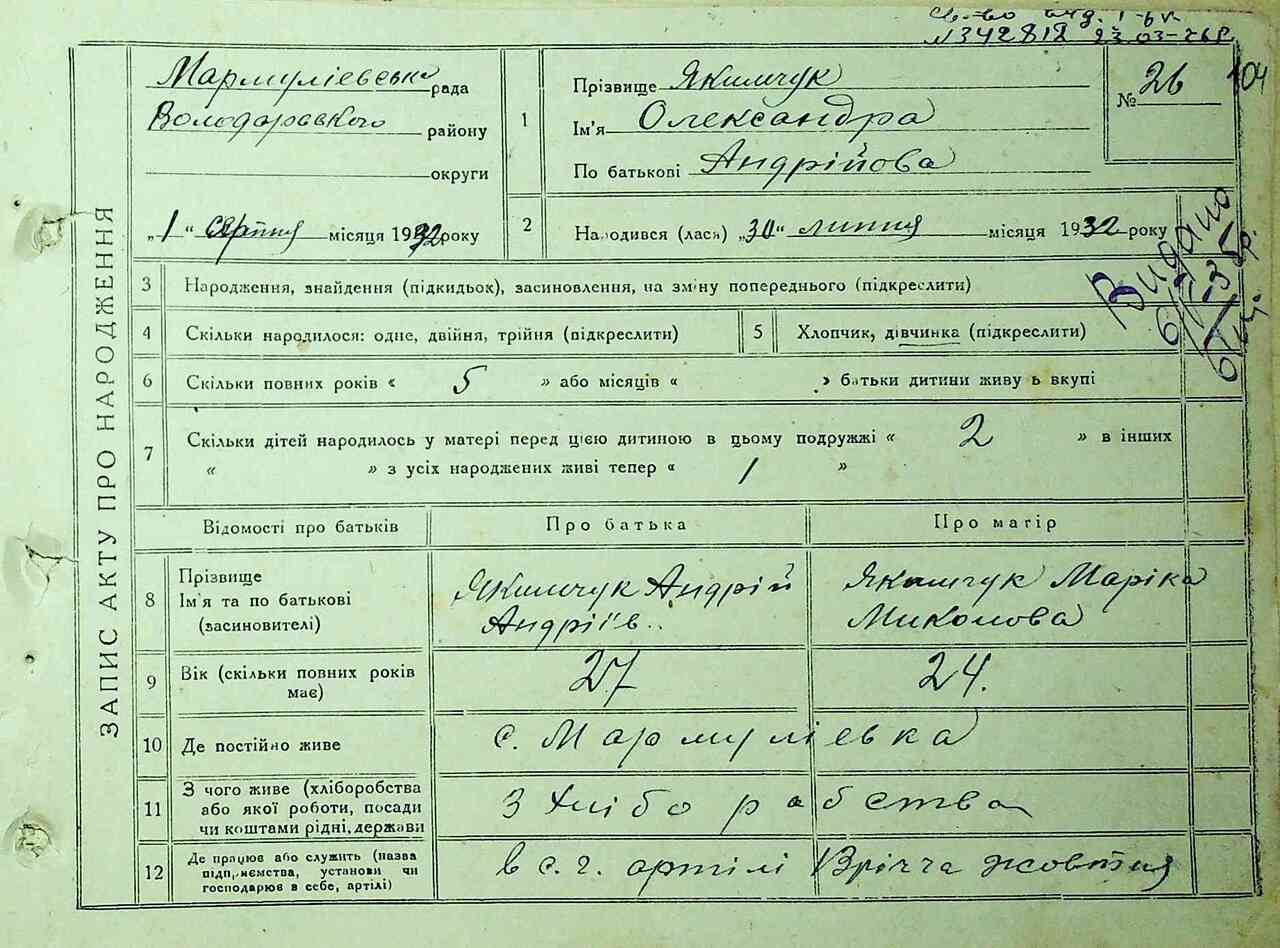 №342818 23.03-76р.
ЗАПИС АКТУ ПРО НАРОДЖЕННЯ
Мармуліевська рада
Володарського району
округи
„1“ серпня місяця 1932 року
1
Прізвище Якимчук
Ім'я Олександра
По батькові Андрійова
№ 26
104
2
Народився (лася) „30“ липня місяця 1932 року
Видано
3 Народження, знайдення (підкидьок), засиновлення, на зміну попереднього (підкреслити)
4 Скільки народилося: одне, двійня, трійня (підкреслити)
5 Хлопчик, дівчинка (підкреслити)
6 Скільки повних років « 5 » або місяців « » батьки дитини живуть вкупі
7 Скільки дітей народилось у матері перед цією дитиною в цьому подружжі « 2 » в інших
« » з усіх народжених живі тепер « 1 »
Відомості про батьків Про батька Про матір
8 Прізвище
Ім'я та по батькові
(засиновителі)
Якимчук Андрій
Андріїв..
Якимчук Маріка
Миколова
9 Вік (скільки повних років
має)
27 24.
10 Де постійно живе с. Мармуліевка
11 З чого живе (хліборобства
або якої роботи, посади
чи коштами рідні, держави
З хліборабства
12 Де працює або служить (назва
підприємства, установи чи
господарює в себе, артілі)
в с. г. артілі Врічча жовтня